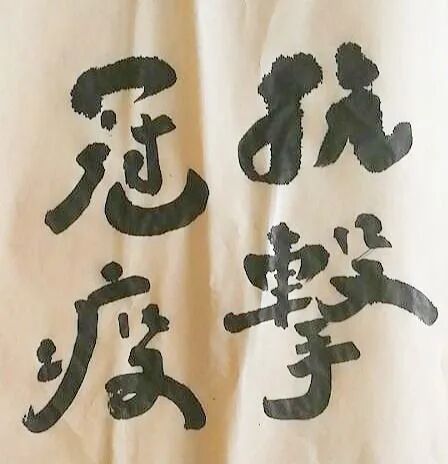 抗擊
冠疫